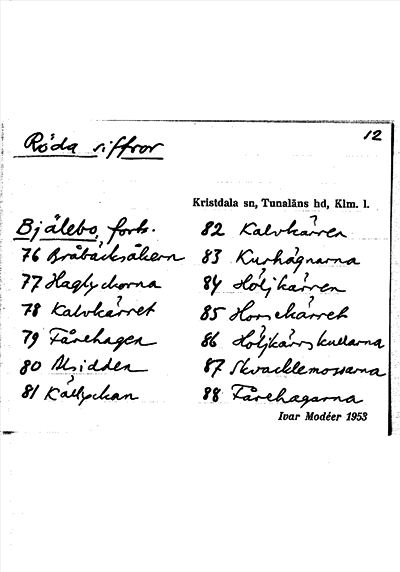 12
Röda siffror
Kristdala sn, Tunaläns hd, Klm. l.
Bjälebo, forts.
76 Bråbäcksåkern
77 Haglyckorna
78 Kalvkärret
79 Fårehagen
80 Alsidden
81 Kållyckan
82 Kalvkärren
83 Kurhagnarna
84 Höljkärren
85 Horsekärret
86 Höljkärrskullarna
87 Skvacklemossarna
88 Fårehagarna
Ivar Modéer 1953